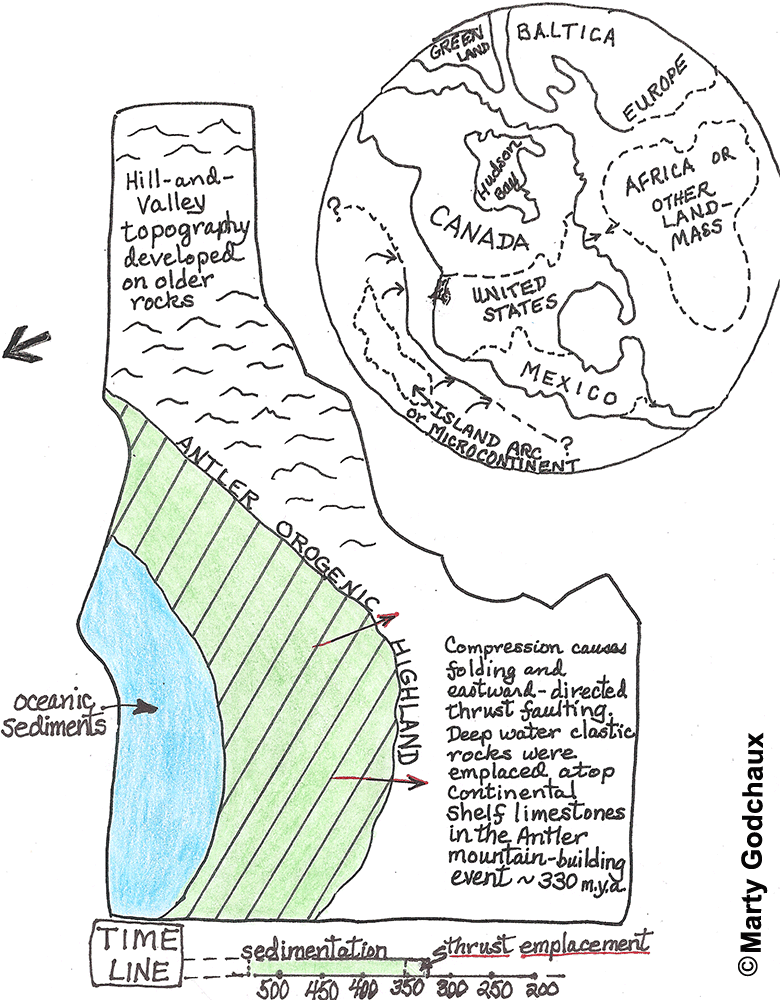 GREEN
LAND
BALTICA
EUROPE
AFRICA OR
OTHER
LAND-
MASS
Hudson
Bay
CANADA
UNITED
STATES
MEXICO
?
ISLAND ARC
or MICROCONTINENT
?
Hill-and-
Valley
topography
developed
on older
rocks
ANTLER OROGENIC HIGHLAND
oceanic
sediments
Compression causes
folding and
eastward-directed
thrust faulting.
Deep water clastic
rocks were
emplaced atop
continental
shelf limestones
in the Antler
mountain-building
event ~ 330 m.y.a.
TIME
LINE
sedimentation
thrust emplacement
500 450 400 350 300 250 200
© Marty Godchaux